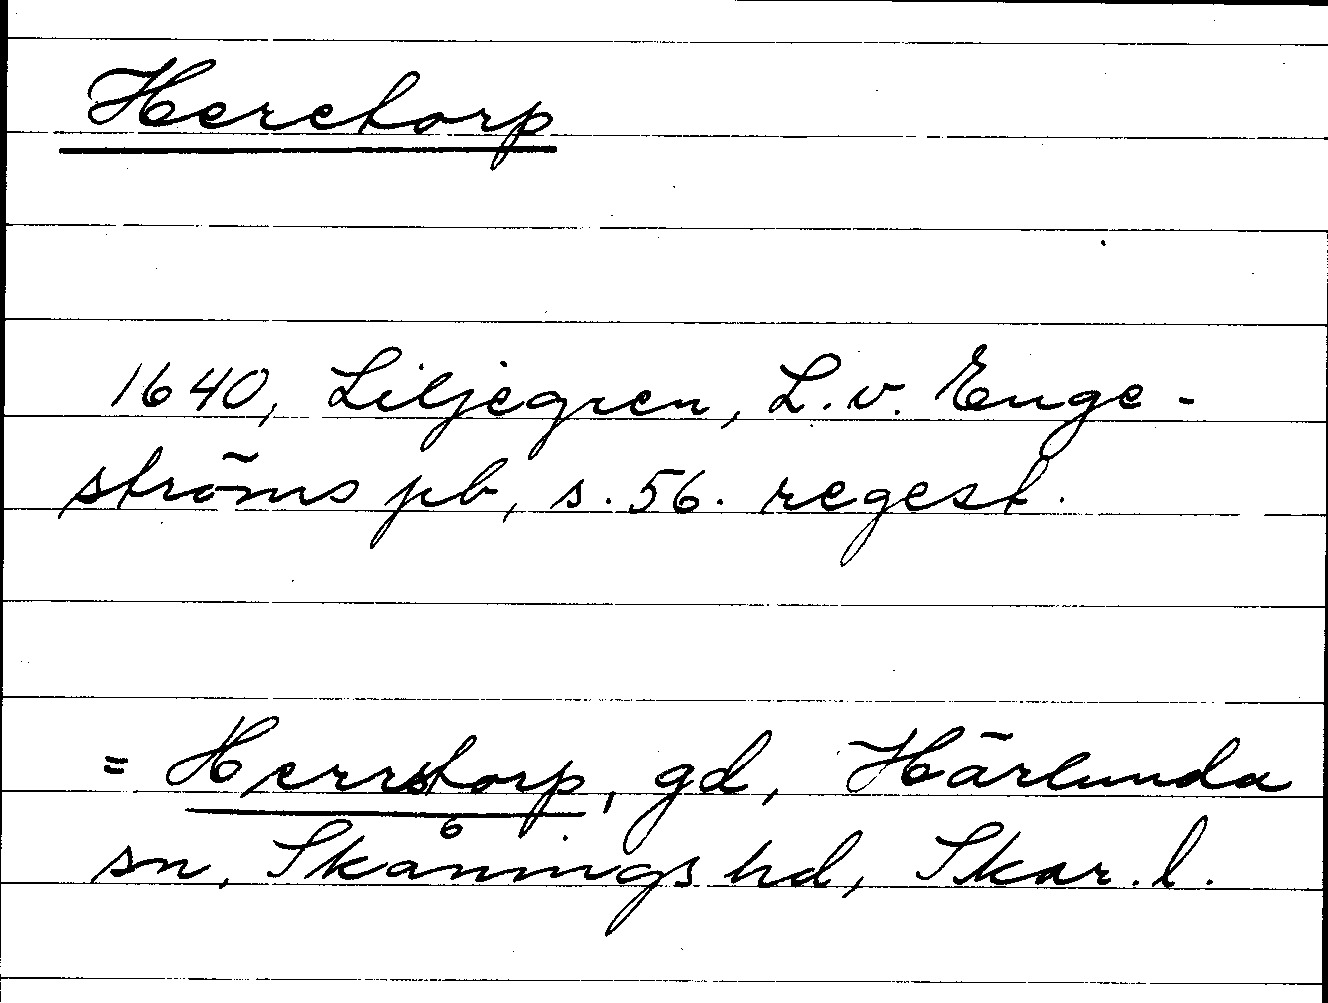 Heretorp
1640, Liljegren, L. v. Enge-
ströms pb, s. 56. regest.
= Herrstorp, gd, Härlunda
sn, Skånings hd, Skar. l.